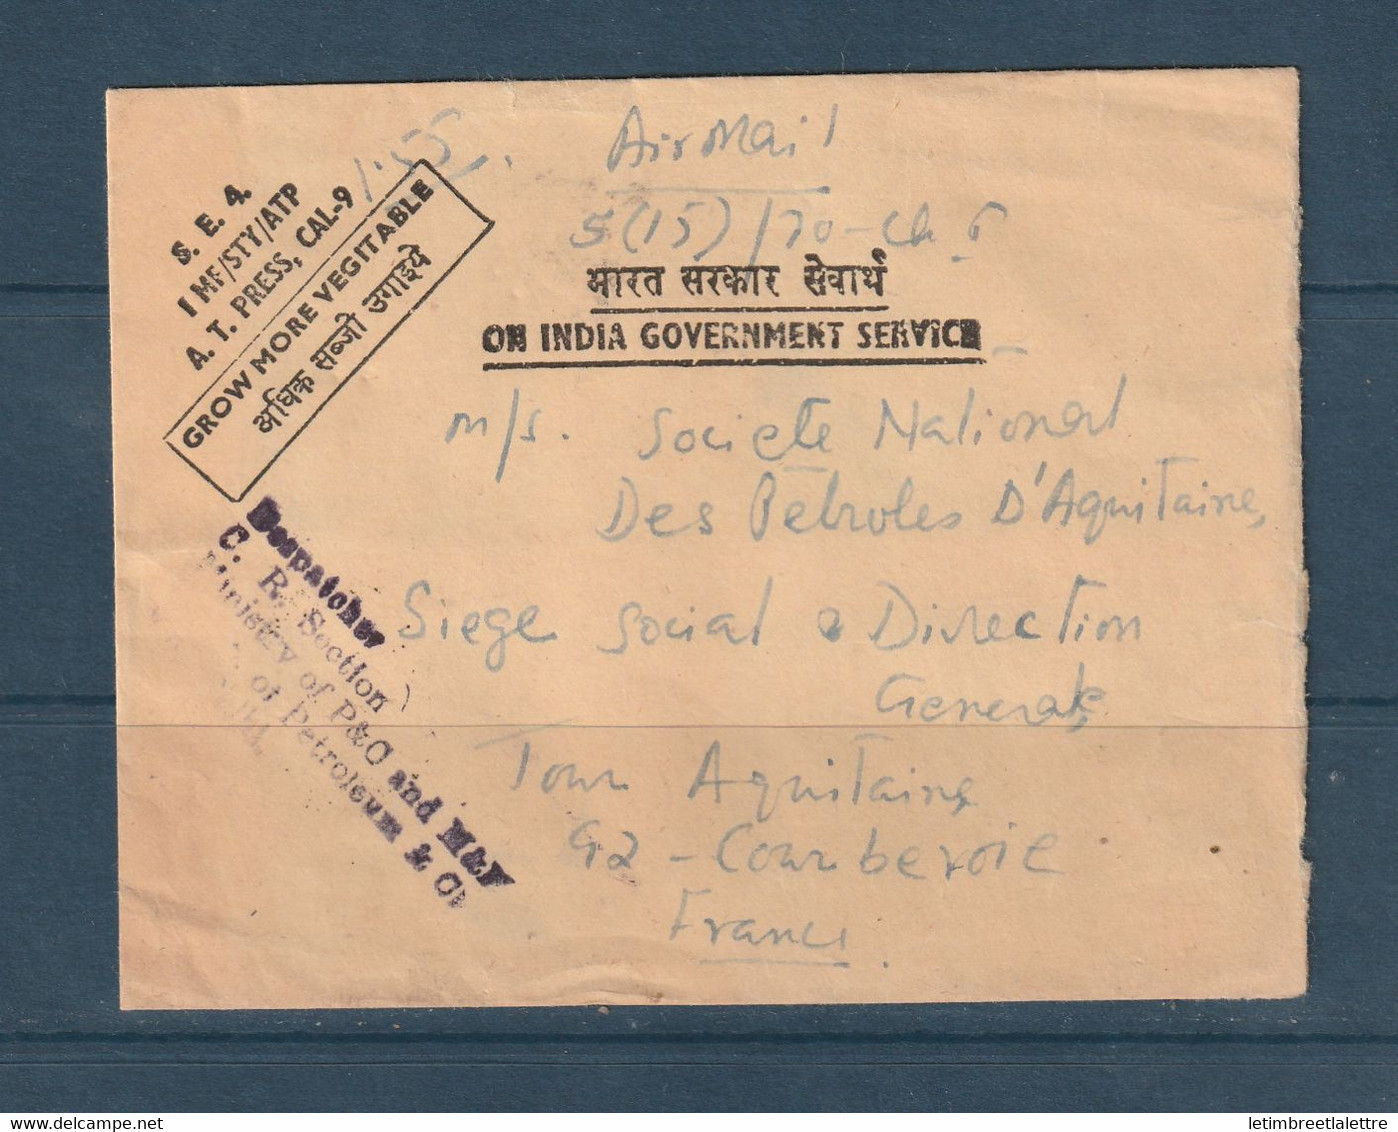 S. E. 4.
1 MF/STY/ATP
A. T. PRESS, CAL-9
GROW MORE VEGITABLE
अधिक सब्जी उगाइये
1.55
Air Mail
5(15)/70-Ch 6
भारत सरकार सेवार्थ
ON INDIA GOVERNMENT SERVICE
M/s. Societe National
Des Pétroles D'Aquitaine,
Siege Social & Direction
Generale
Tour Aquitaine
92 - Courbevoie
France
Despatcher
C. R. Section
Ministry of P&C and M&M
of Petroleum & Ch
letimbreetlalettre
delcampe.net